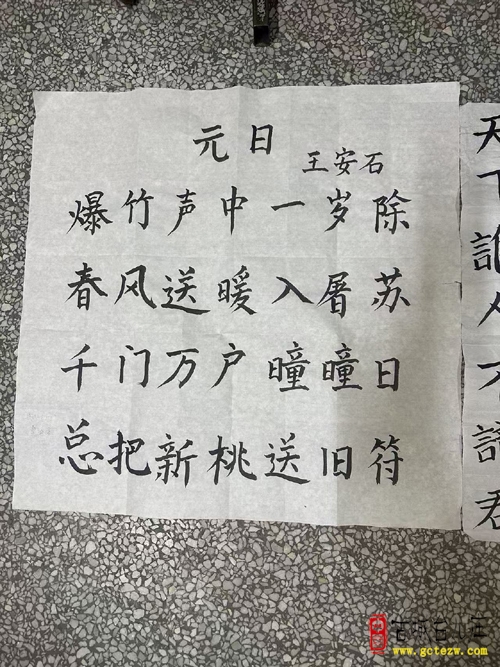 元日
王安石
爆竹声中一岁除
春风送暖入屠苏
千门万户曈曈日
总把新桃送旧符
天下誰人不識君
www.gctezw.com